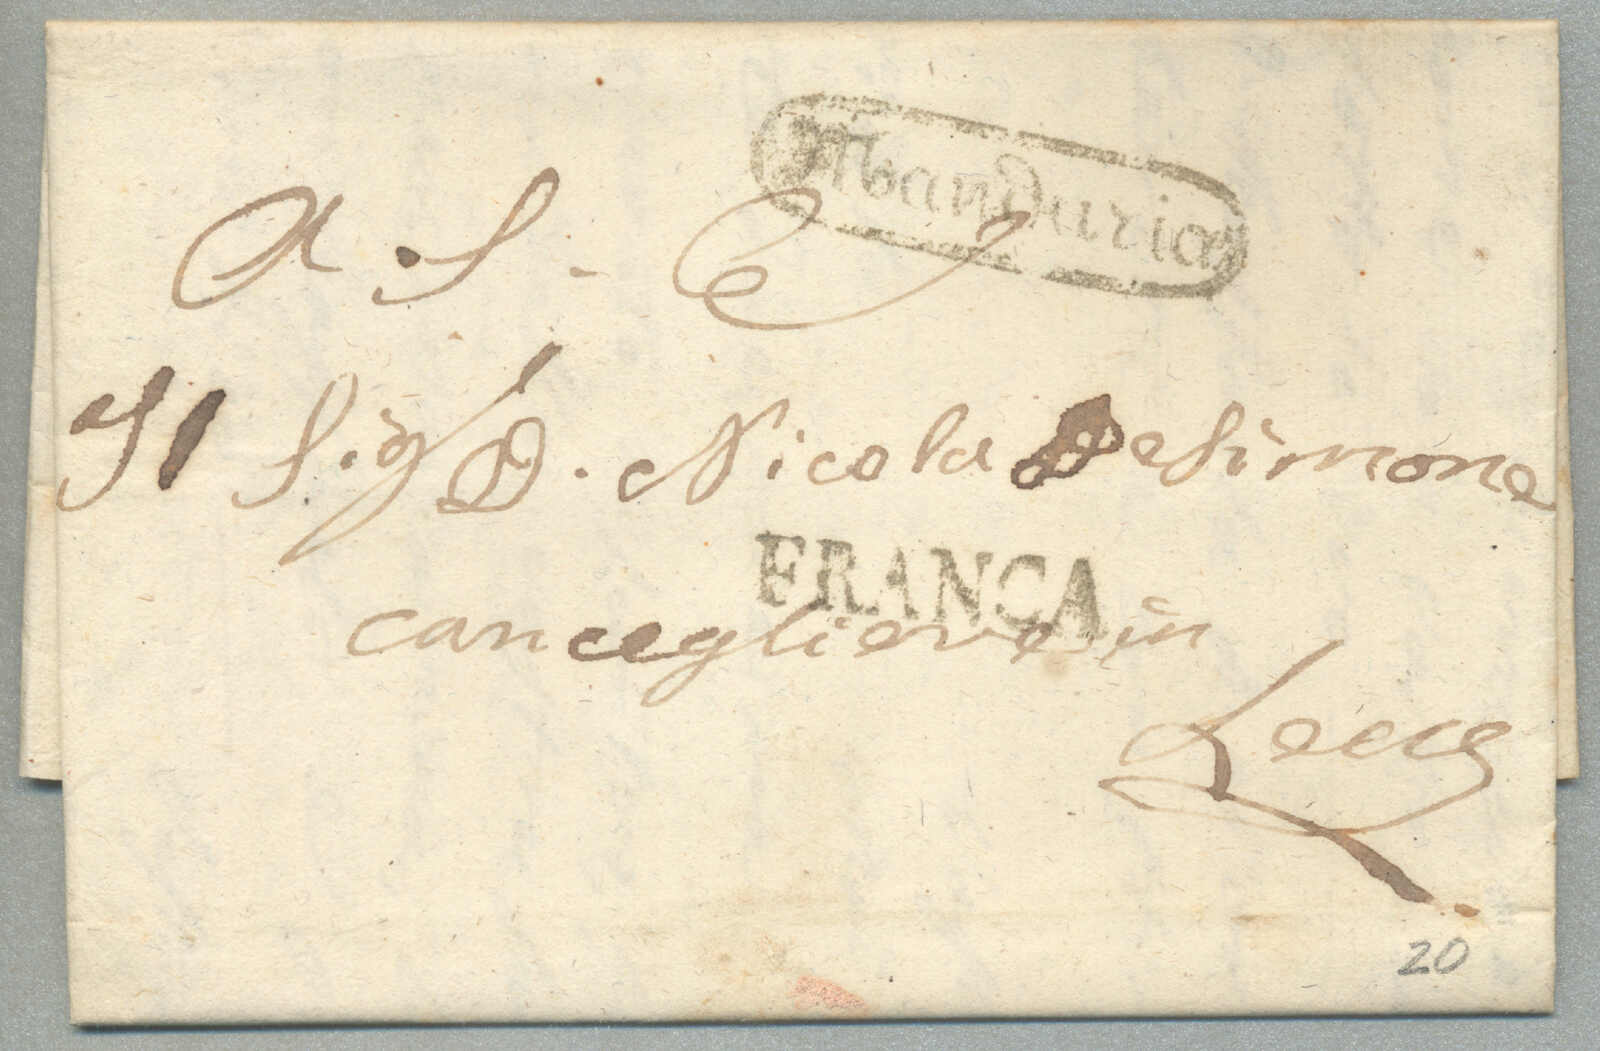 Manduria
A. S. E.
Il Sigr D. Nicola De Simone
FRANCA
cancegliere in
Lecce
20